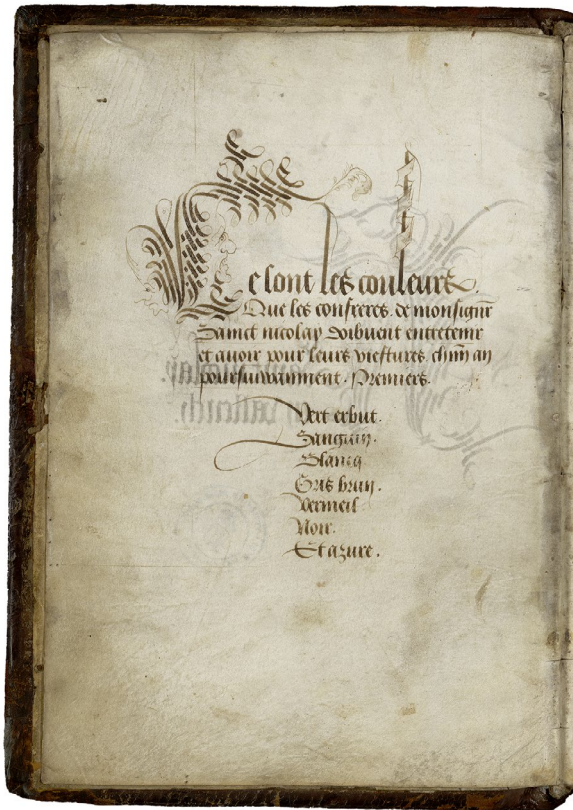 Ce sont les couleurs.
Que les confreres de monsignr
Sainct nicolay doibuent entretenir
et auoir pour leurs viestures chun an
poursuiuanment. Premiers.
Vert erbut.
Sanguin.
Blancq
Gris brun.
Vermeil
Noir.
Et azure.